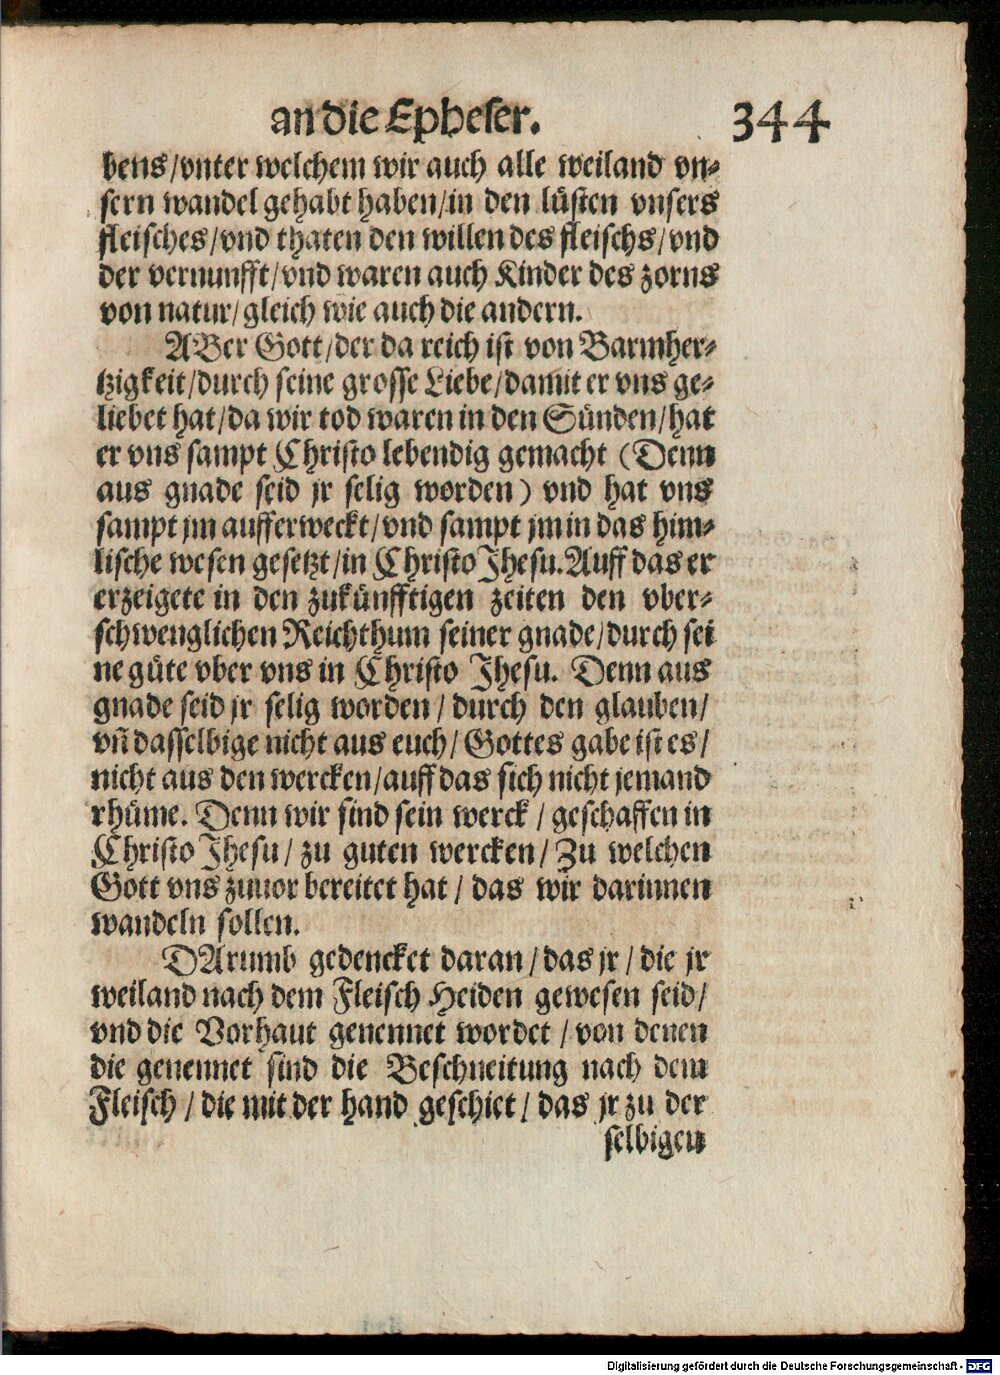 an die Epheser. 344
bens/vnter welchem wir auch alle weiland vn-
sern wandel gehabt haben/in den lüsten vnsers
fleisches/vnd thaten den willen des fleischs/vnd
der vernunfft/vnd waren auch Kinder des zorns
von natur/gleich wie auch die andern.
ABer Gott/der da reich ist von Barmher-
tzigkeit/durch seine grosse Liebe/damit er vns ge-
liebet hat/da wir tod waren in den Sünden/hat
er vns sampt Christo lebendig gemacht (Denn
aus gnade seid jr selig worden) vnd hat vns
sampt jm aufferweckt/vnd sampt jm in das him-
lische wesen gesetzt/in Christo Jhesu. Auff das er
erzeigete in den zukünfftigen zeiten den vber-
schwenglichen Reichthum seiner gnade/durch sei
ne güte vber vns in Christo Jhesu. Denn aus
gnade seid jr selig worden/durch den glauben/
vñ dasselbige nicht aus euch/Gottes gabe ist es/
nicht aus den wercken/auff das sich nicht jemand
rhüme. Denn wir sind sein werck/geschaffen in
Christo Jhesu/zu guten wercken/Zu welchen
Gott vns zuuor bereitet hat/das wir darinnen
wandeln sollen.
DArumb gedencket daran/das jr/die jr
weiland nach dem Fleisch Heiden gewesen seid/
vnd die Vorhaut genennet wordet/von denen
die genennet sind die Beschneitung nach dem
Fleisch/die mit der hand geschiet/das jr zu der
selbigen
Digitalisierung gefördert durch die Deutsche Forschungsgemeinschaft - DFG